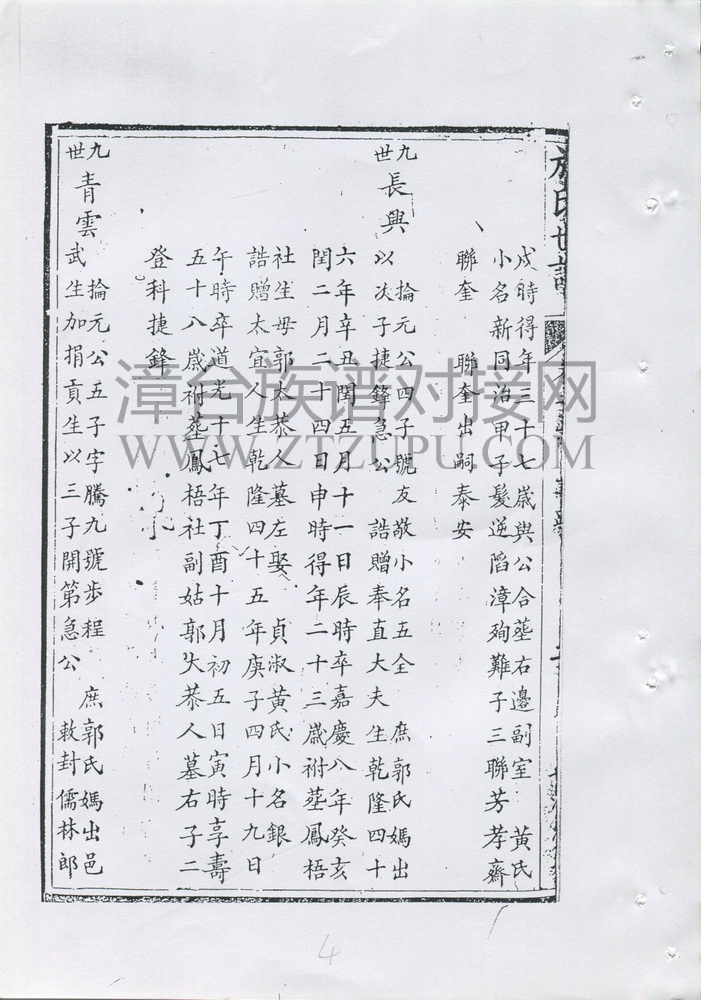 戍時得年三十七歲與公合塟右邊副室　黄氏
小名新同治甲子髮逆陷漳殉難子三聯芳孝齋
聯奎　聯奎出嗣奉安
九世　長興
掄元公四子號友敬小名五全　庶郭氏媽出
以次子捷鋒急公　誥贈奉直大夫生乾隆四十
六年辛丑閏五月十一日辰時卒嘉慶八年癸亥
閏二月二十四日申時得年二十三歲祔塟鳳梧
社生母郭太恭人墓左娶　貞淑黄氏小名銀
誥贈太宜人生乾隆四十五年庚子四月十九日
午時卒道光十七年丁酉十月初五日寅時享壽
五十八歲祔塟鳳梧社副姑郭太恭人墓右子二
登科捷鋒
九世　青雲
掄元公五子字騰九號步程　庶郭氏媽出邑
武生加捐貢生以三子開第急公　敕封儒林郎
氏世譜
漳台族谱对接网
WWW.ZTZUPU.COM
4